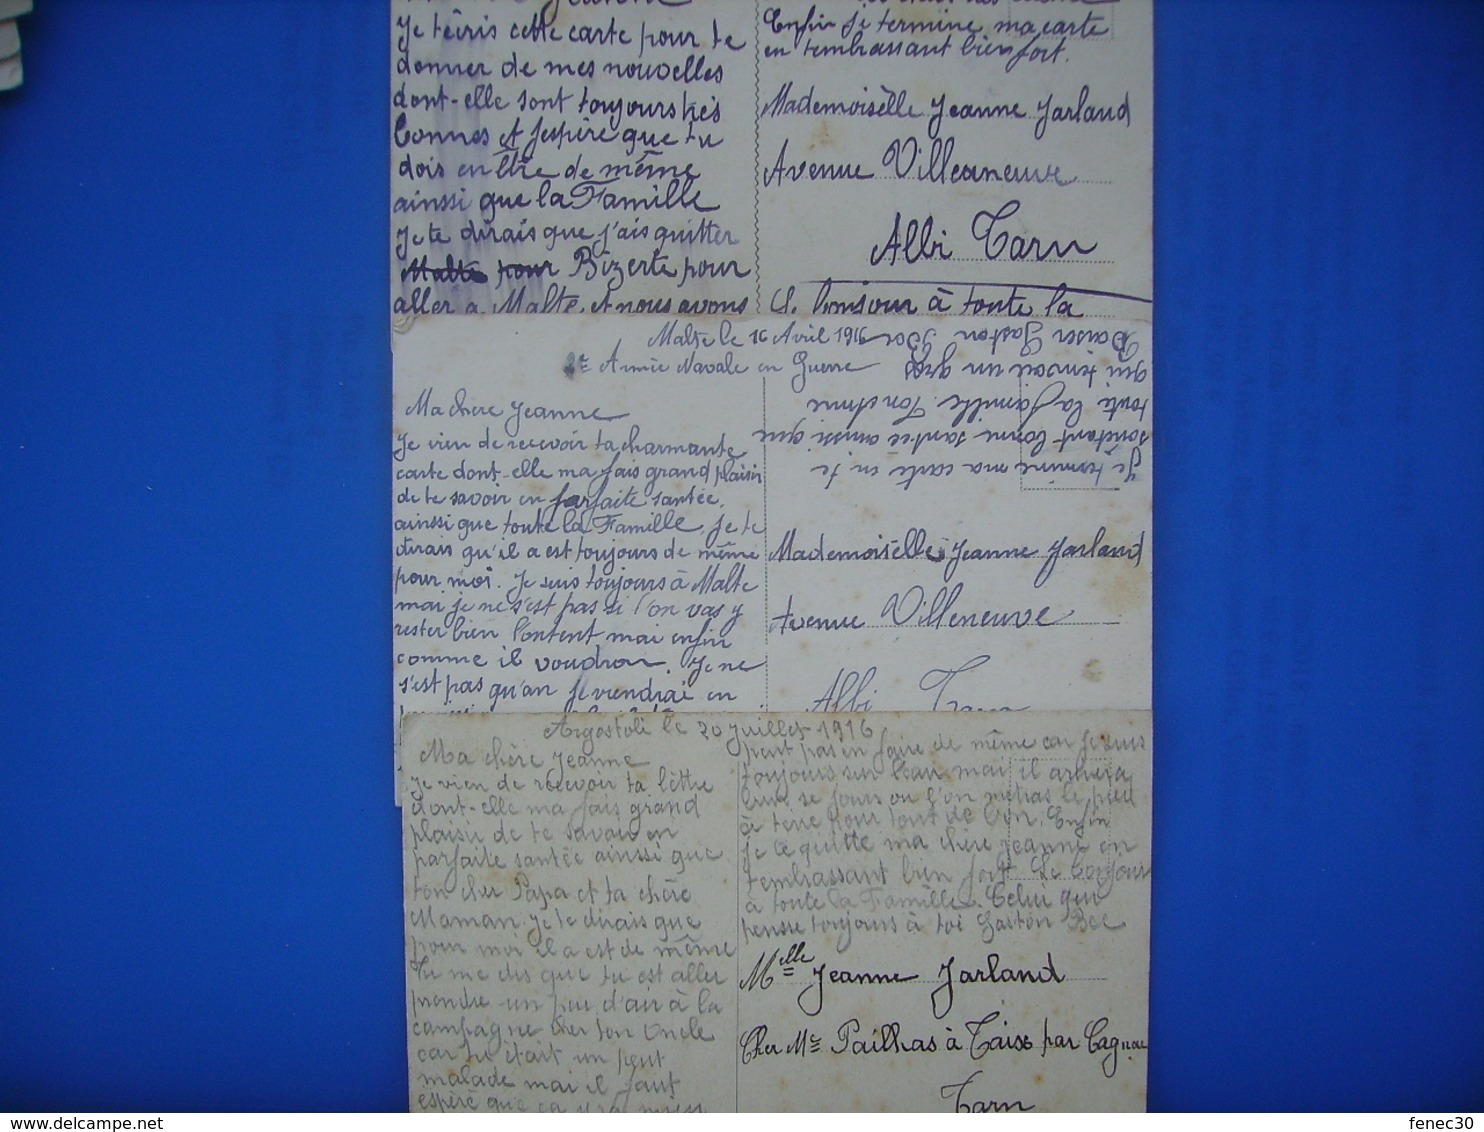 Je técris cette carte pour te
donner de mes nouvelles
dont-elle sont toujours trés
bonnes et j'espére que tu
dois en être de même
ainssi que la Famille
Je te dirais que j'ais quitter
Malte pour Bizerte pour
aller a Malte, et nous avons
Enfin je termine ma carte
en tembrassant bien fort.
Mademoisèlle Jeanne Jarland
Avenue Villeaneuve
Albi Tarn
Le bonjour à toute la
Malte le 16 Avril 1916
2e Armée Navale en Guerre
Ma chère Jeanne
Je vien de recevoir ta charmante
carte dont-elle ma fais grand plaisir
de te savoir en parfaite santée,
ainssi que toute la Famille, je te
dirais qu'il a est toujours de même
pour moi. Je suis toujours à Malte
mai je ne s'est pas si l'on vas y
rester bien lontent mai enfin
comme il voudron. Je ne
s'est pas qu'an je viendrai en
Je termine ma carte en te
soutant bonne santée ainssi que
toute la famille. Ton
qui t'envoie un gros
Baiser Gaston Bec
Mademoisèlle Jeanne Jarland
Avenue Villeneuve
Albi Tarn
Argostoli le 20 Juillet 1916
Ma chère Jeanne
Je vien de recevoir ta lèttre
dont-elle ma fais grand
plaisir de te savoir en
parfaite santée ainssi que
ton cher Papa et ta chère
Maman. Je te dirais que
pour moi il a est de même
Tu me dis que tu est aller
prendre un peu d'air à la
campagne cher ton Oncle
car tu était un peut
malade mai il faut
espéré que ça
peut pas en faire de même car je suis
toujours sur l'eau mai il arivera
bien se jours ou l'on metras le pied
à terre pour tout de bon. Enfin
je te quitte ma chère Jeanne en
t'embrassant bien fort Le bonjour
à toute la Famille. Celui qui
pense toujours à toi Gaston Bec
Melle Jeanne Jarland
Cher Mr Pailhas à Taïx par Cagnac
Tarn
fenec30